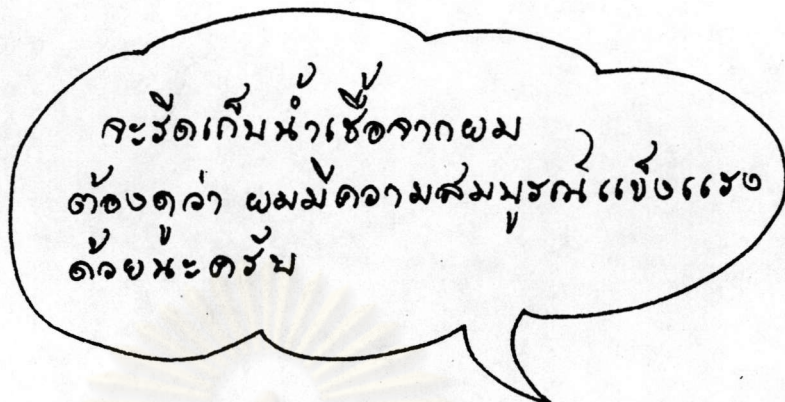 จะรีดเก็บน้ำเชื้อจากผม
ต้องดูว่า ผมมีความสมบูรณ์แข็งแรง
ด้วยนะครับ